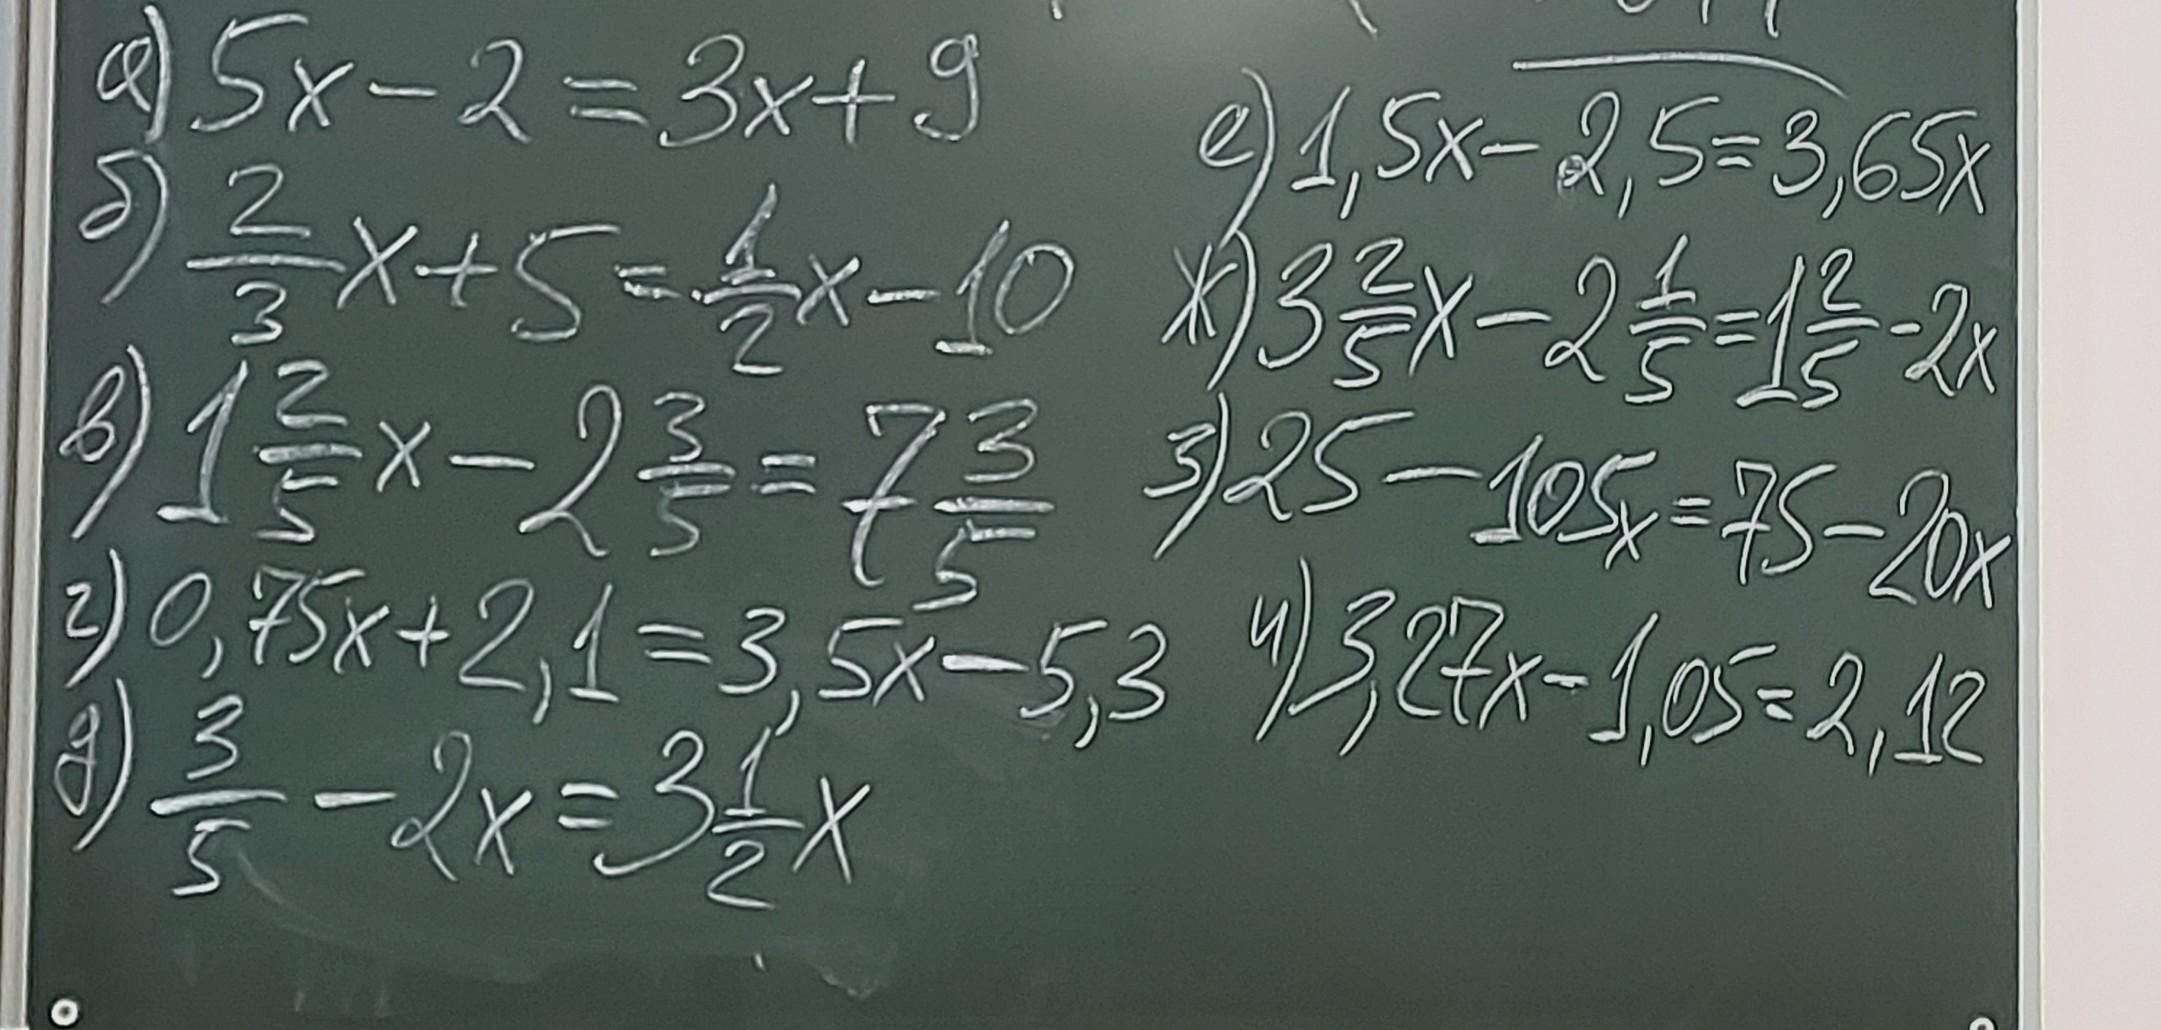 а) 5x - 2 = 3x + 9
б) 2/3 x + 5 = 1/2 x - 10
в) 1 2/5 x - 2 3/5 = 7 3/5
г) 0,75x + 2,1 = 3,5x - 5,3
д) 3/5 - 2x = 3 1/2 x
е) 1,5x - 2,5 = 3,65x
ж) 3 2/5 x - 2 1/5 = 1 2/5 - 2x
з) 25 - 105x = 75 - 20x
и) 3,27x - 1,05 = 2,12